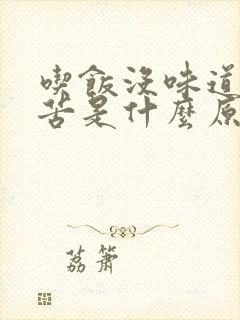 喫飯沒味道
苦是什麼原
荔簫